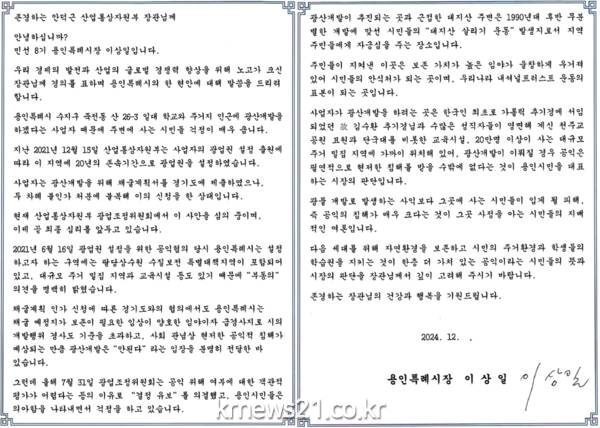 존경하는 안덕근 산업통상자원부 장관님께
안녕하십니까?
민선 8기 용인특례시장 이상일입니다.
우리 경제의 발전과 산업의 글로벌 경쟁력 향상을 위해 노고가 크신
장관님께 경의를 표하며 용인특례시의 한 현안에 대해 말씀을 드리려
합니다.
용인특례시 수지구 죽전동 산 26-3 일대 학교와 주거지 인근에 광산개발을
하겠다는 사업자 때문에 주변에 사는 시민들 걱정이 매우 큽니다.
지난 2021년 12월 15일 산업통상자원부는 사업자의 광업권 설정 출원에
따라 이 지역에 20년의 존속기간으로 광업권을 설정하였습니다.
사업자는 광산개발을 위해 채굴계획서를 경기도에 제출하였으나,
두 차례 불인가 처분에 불복해 이의 신청을 한 상태입니다.
현재 산업통상자원부 광업조정위원회에서 이 사안을 심의 중이며,
이제 곧 최종 심리를 앞두고 있습니다.
2021년 6월 16일 광업권 설정을 위한 공익협의 당시 용인특례시는 설정
하고자 하는 구역에는 팔당상수원 수질보전 특별대책지역이 포함되어
있고, 대규모 주거 밀집 지역과 교육시설 등도 있기 때문에 "부동의"
의견을 명백히 밝혔습니다.
채굴계획 인가 신청에 따른 경기도와의 협의에서도 용인특례시는
채굴 예정지가 보존이 필요한 임상이 양호한 임야이자 급경사지로 시의
개발행위 경사도 기준을 초과하고, 사회 관념상 현저한 공익적 침해가
예상되는 만큼 광산개발은 "안된다" 라는 입장을 분명히 전달한 바
있습니다.
그런데 올해 7월 31일 광업조정위원회는 공익 위해 여부에 대한 객관적
평가가 어렵다는 등의 이유로 "결정 유보" 를 의결했고, 용인시민들은
의아함을 나타내면서 걱정을 하고 있습니다.
광산개발이 추진되는 곳과 근접한 대지산 주변은 1990년대 후반 무분
별한 개발에 맞선 시민들의 "대지산 살리기 운동" 발생지로서 지역
주민들에게 자긍심을 주는 장소입니다.
주민들이 지켜낸 이곳은 보존 가치가 높은 임야가 울창하게 우거져
있어 시민들의 안식처가 되는 곳이며, 우리나라 내셔널트러스트 운동의
표본이 되는 곳입니다.
사업자가 광산개발을 하려는 곳은 한국인 최초로 가톨릭 추기경에 서임
되었던 故 김수환 추기경님과 수많은 성직자들이 영면해 계신 천주교
공원 묘원과 단국대를 비롯한 교육시설, 20만명 이상이 사는 대규모
주거 밀집 지역에 가까이 위치해 있어, 광산개발이 이뤄질 경우 공익은
필연적으로 현저한 침해를 받을 수밖에 없다는 것이 용인시민을 대표
하는 시장의 판단입니다.
광물 개발로 발생하는 사익보다 그곳에 사는 시민들이 입게 될 피해,
즉 공익의 침해가 매우 크다는 것이 그곳 사정을 아는 시민들의 지배
적인 여론입니다.
다음 세대를 위해 자연환경을 보존하고 시민의 주거환경과 학생들의
학습권을 지키는 것이 한층 더 가치 있는 공익이라는 시민들의 뜻과
시장의 판단을 장관님께서 깊이 고려해 주시기 바랍니다.
존경하는 장관님의 건강과 행복을 기원드립니다.
2024. 12. .
용인특례시장 이 상 일
이상일
kmews21.co.kr